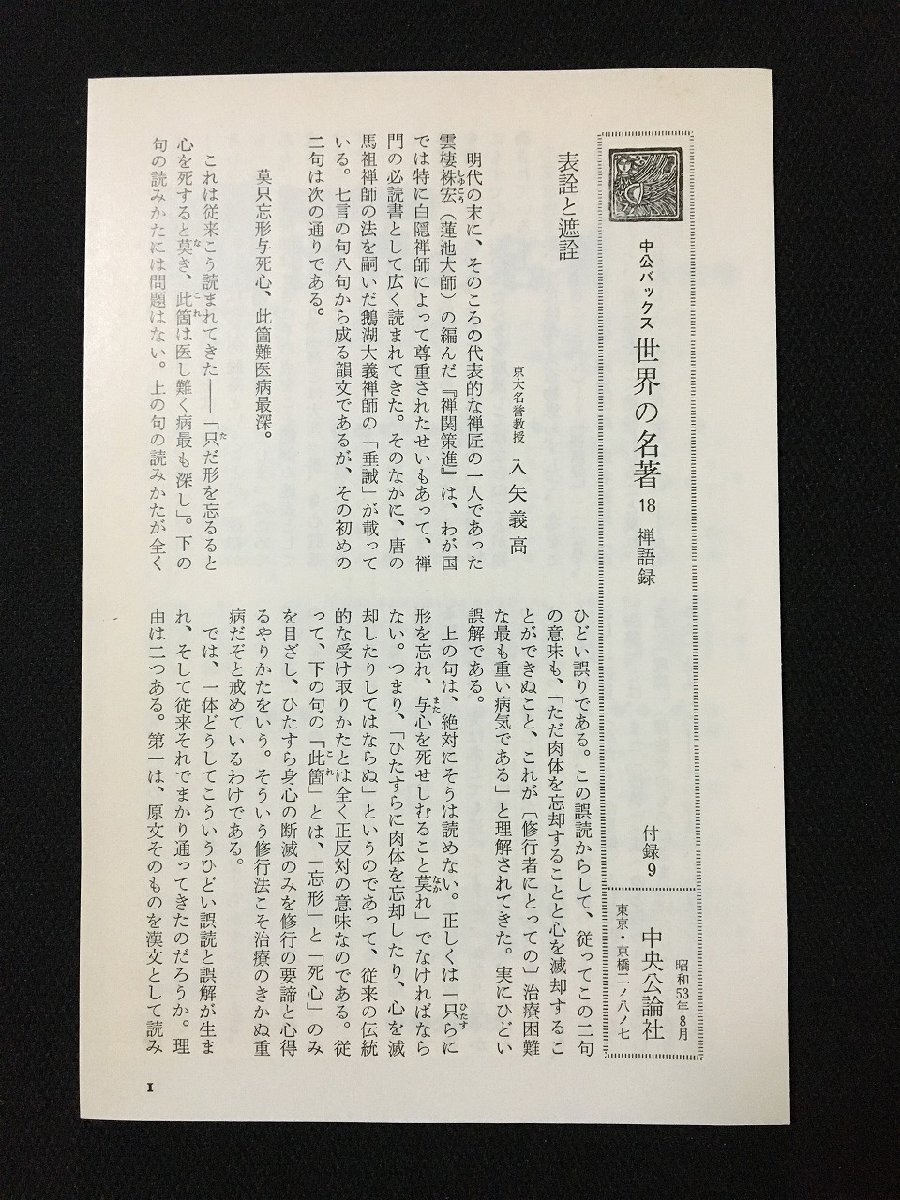 中公バックス 世界の名著 18 禅語録
付録9
昭和53年8月
中央公論社
東京・京橋二ノ八ノ七
表詮と遮詮
京大名誉教授 入矢義高
明代の末に、そのころの代表的な禅匠の一人であった
雲棲袾宏（蓮池大師）の編んだ『禅関策進』は、わが国
では特に白隠禅師によって尊重されたせいもあって、禅
門の必読書として広く読まれてきた。そのなかに、唐の
馬祖禅師の法を嗣いだ鵝湖大義禅師の「垂誡」が載って
いる。七言の句八句から成る韻文であるが、その初めの
二句は次の通りである。
莫只忘形与死心、此箇難医病最深。
これは従来こう読まれてきた——「只だ形を忘るると
心を死すると莫き、此箇は医し難く病最も深し」。下の
句の読みかたには問題はない。上の句の読みかたが全く
ひどい誤りである。この誤読からして、従ってこの二句
の意味も、「ただ肉体を忘却することと心を滅却するこ
とができぬこと、これが〔修行者にとっての〕治療困難
な最も重い病気である」と理解されてきた。実にひどい
誤解である。
上の句は、絶対にそうは読めない。正しくは「只らに
形を忘れ、与心を死せしむること莫れ」でなければなら
ない。つまり、「ひたすらに肉体を忘却したり、心を滅
却したりしてはならぬ」というのであって、従来の伝統
的な受け取りかたとは全く正反対の意味なのである。従
って、下の句の「此箇」とは、「忘形」と「死心」のみ
を目ざし、ひたすら身心の断滅のみを修行の要諦と心得
るやりかたをいう。そういう修行法こそ治療のきかぬ重
病だぞと戒めているわけである。
では、一体どうしてこういうひどい誤読と誤解が生ま
れ、そして従来それでまかり通ってきたのだろうか。理
由は二つある。第一は、原文そのものを漢文として読み
1